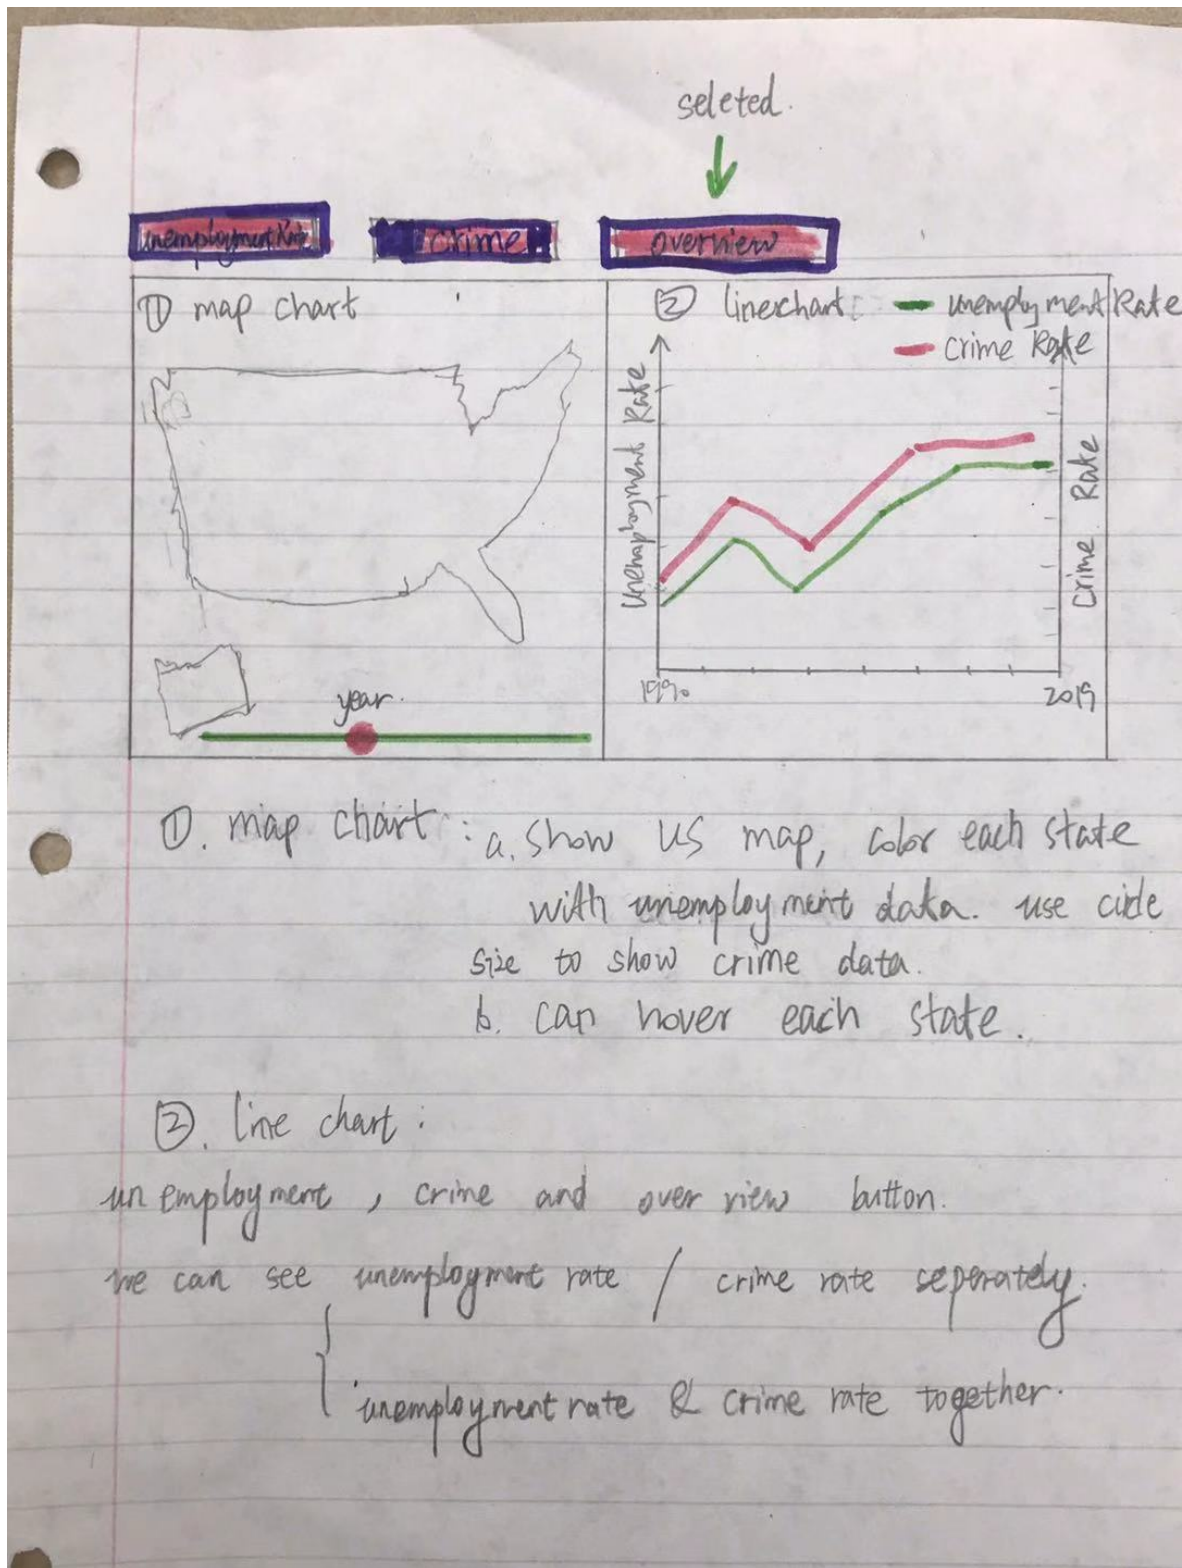 seleted.
unemployment Rate
crime
overview
① map chart
② linechart:
unemployment Rate
crime Rate
Unemployment Rate
Crime Rate
year.
1990
2019
①. map chart : a. show US map, color each state
with unemployment data. use circle
size to show crime data.
b. can hover each state.
②. line chart :
unemployment , crime and over view button.
we can see unemployment rate / crime rate seperately.
unemployment rate & crime rate together.